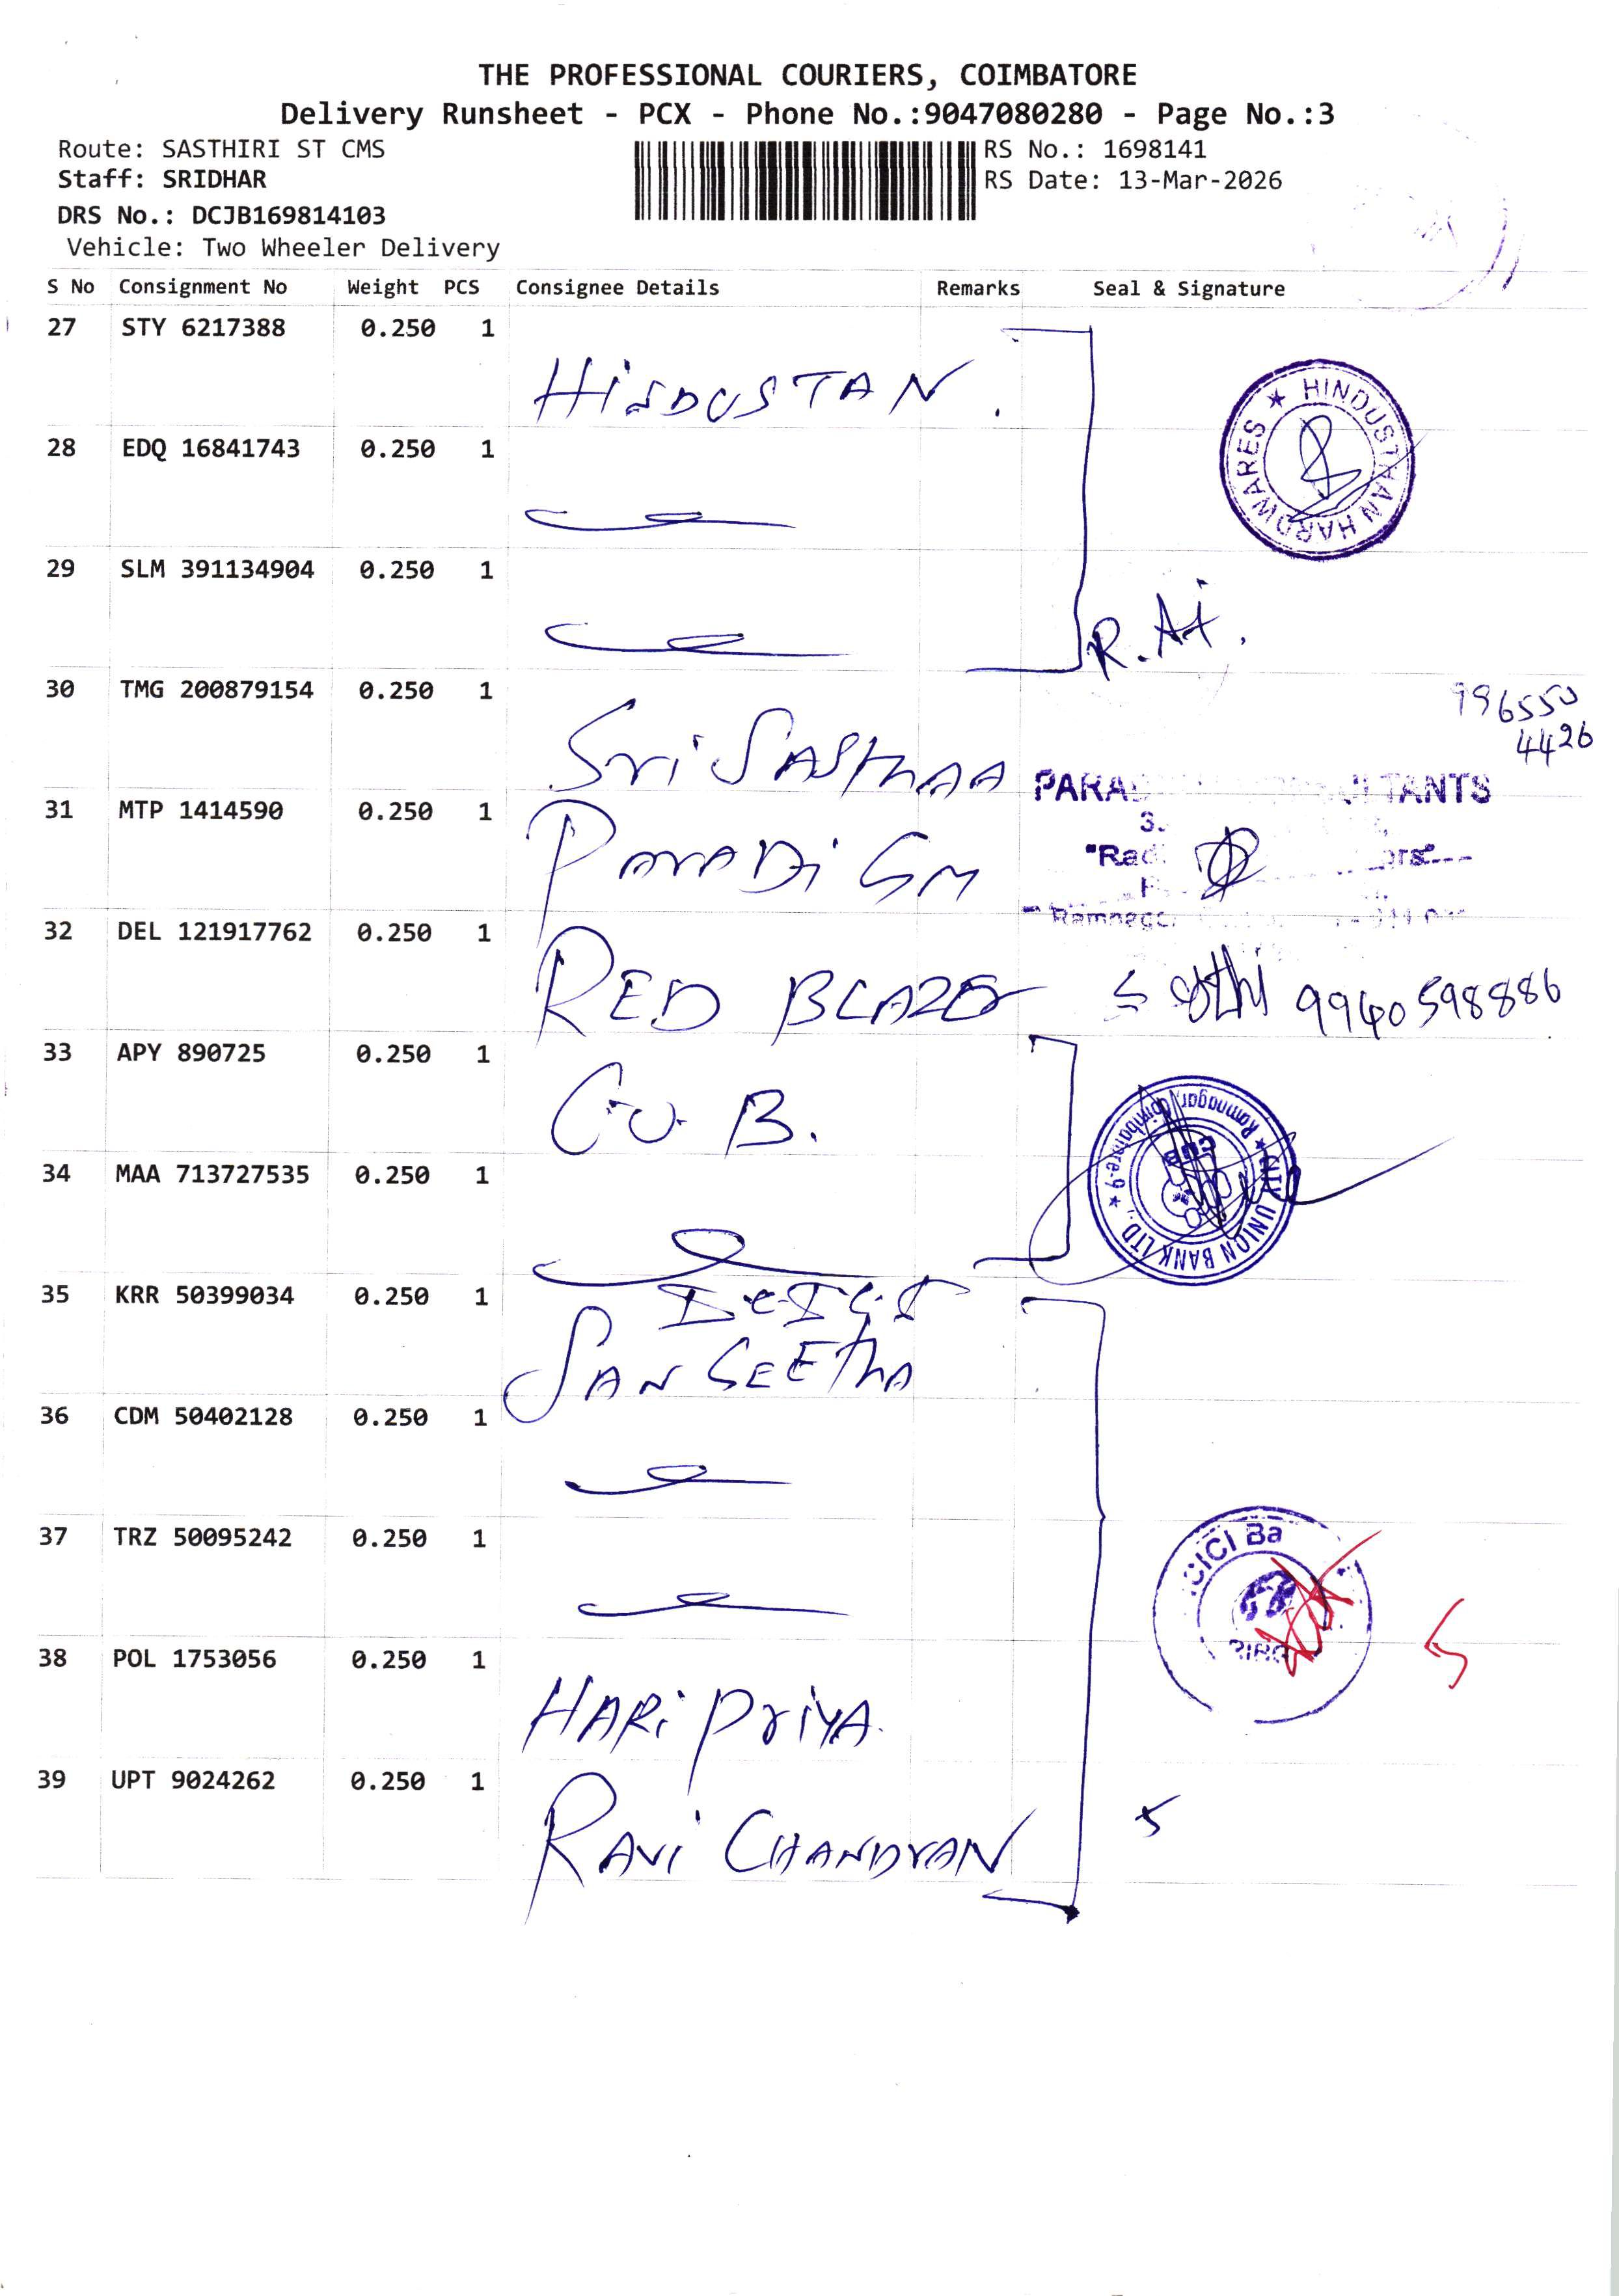 THE PROFESSIONAL COURIERS, COIMBATORE
Delivery Runsheet - PCX - Phone No.:9047080280 - Page No.:3
Route: SASTHIRI ST CMS
RS No.: 1698141
Staff: SRIDHAR
RS Date: 13-Mar-2026
DRS No.: DCJB169814103
Vehicle: Two Wheeler Delivery
S No Consignment No Weight PCS Consignee Details Remarks Seal & Signature
27 STY 6217388 0.250 1
HINDUSTAN.
★ HINDUSTHAN HARDWARES
28 EDQ 16841743 0.250 1
29 SLM 391134904 0.250 1
R.
30 TMG 200879154 0.250 1
996550
4426
Sri SASthAA
TANTS
31 MTP 1414590 0.250 1
ParADiGM
32 DEL 121917762 0.250 1
RED BLAZE
9940598886
33 APY 890725 0.250 1
C.U.B.
★ CITY UNION BANK LTD. ★ Ramnagar, Coimbatore-9
CUB
34 MAA 713727535 0.250 1
35 KRR 50399034 0.250 1
SANGEETHA
36 CDM 50402128 0.250 1
37 TRZ 50095242 0.250 1
ICICI Ba
38 POL 1753056 0.250 1
5
HARiPriYA.
39 UPT 9024262 0.250 1
5
RAVi CHANDRAN